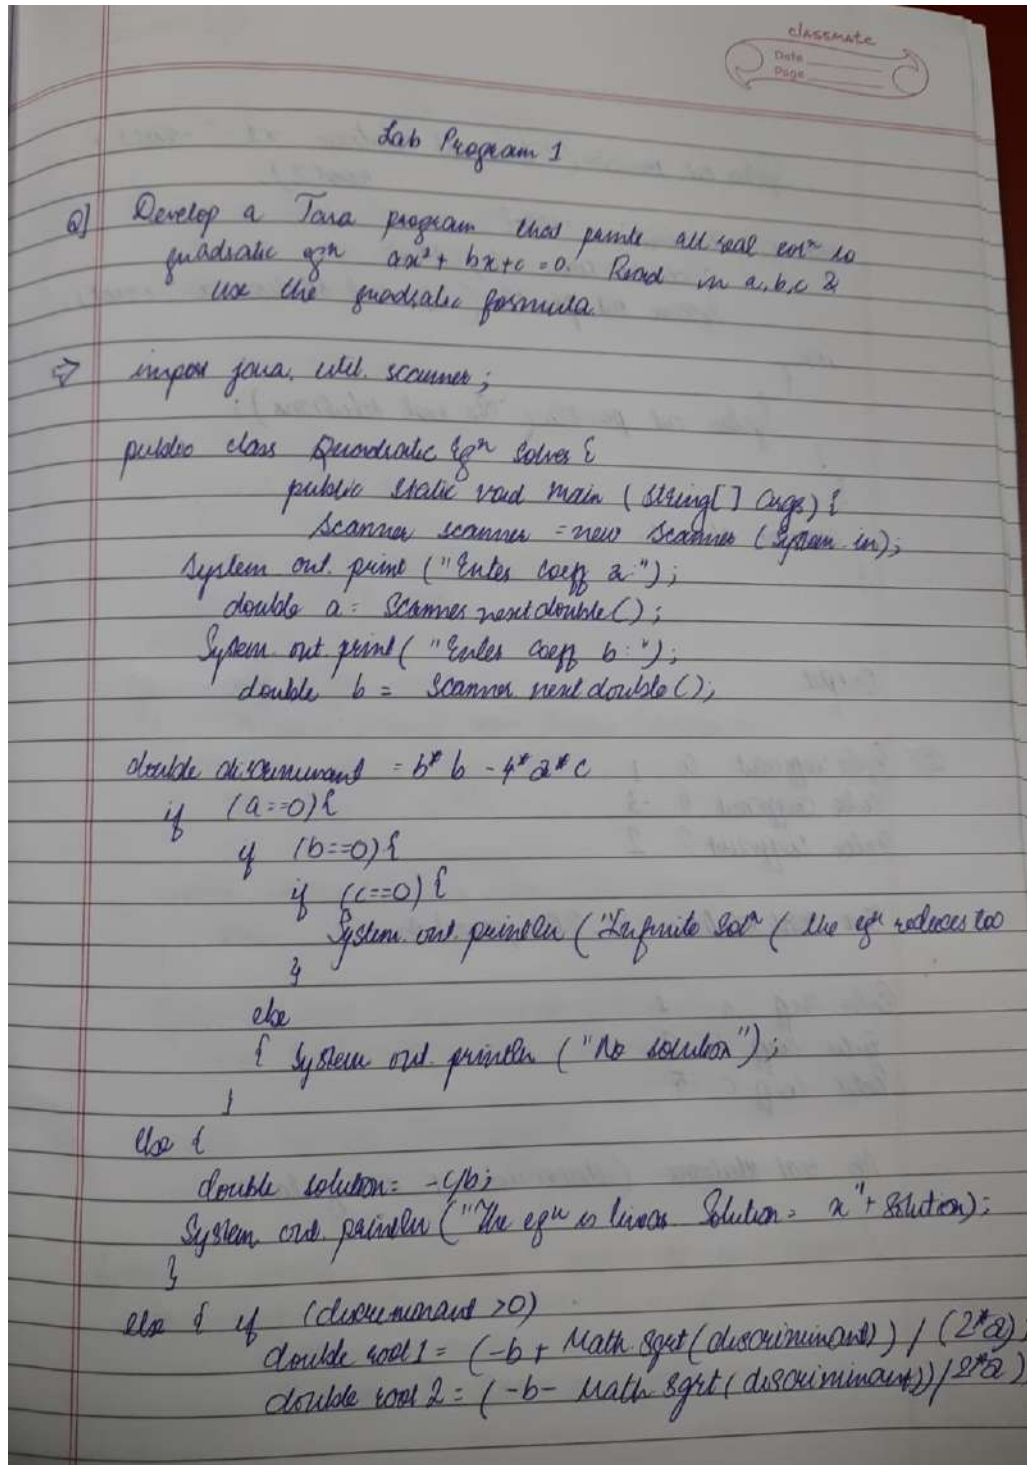 classmate
Date
Page
Lab Program 1
Q] Develop a Java program that prints all real solⁿ to
quadratic eqⁿ ax² + bx + c = 0. Read in a, b, c &
use the quadratic formula.
⇒ import java. util. scanner;
public class Quadratic Eqⁿ Solver {
public static void main (String[] args) {
Scanner scanner = new Scanner (System. in);
System. out. print ("Enter coeff a:");
double a = Scanner next double();
System. out. print ("Enter coeff b:");
double b = Scanner next double();
double discriminant = b* b - 4* a* c
if (a==0){
if (b==0){
if (c==0) {
System. out. println ("Infinite Solⁿ ( the eqⁿ reduces too
}
else
{ System out. println ("No solution");
}
else {
double solution= -c/b;
System. out. println ("The eqⁿ is linear. Solution= x" + Solution);
}
else { if (discriminant >0)
double root1 = (-b+ Math. Sqrt(discriminant)) / (2*a);
double root 2 = (-b- Math Sqrt(discriminant))/2*a)